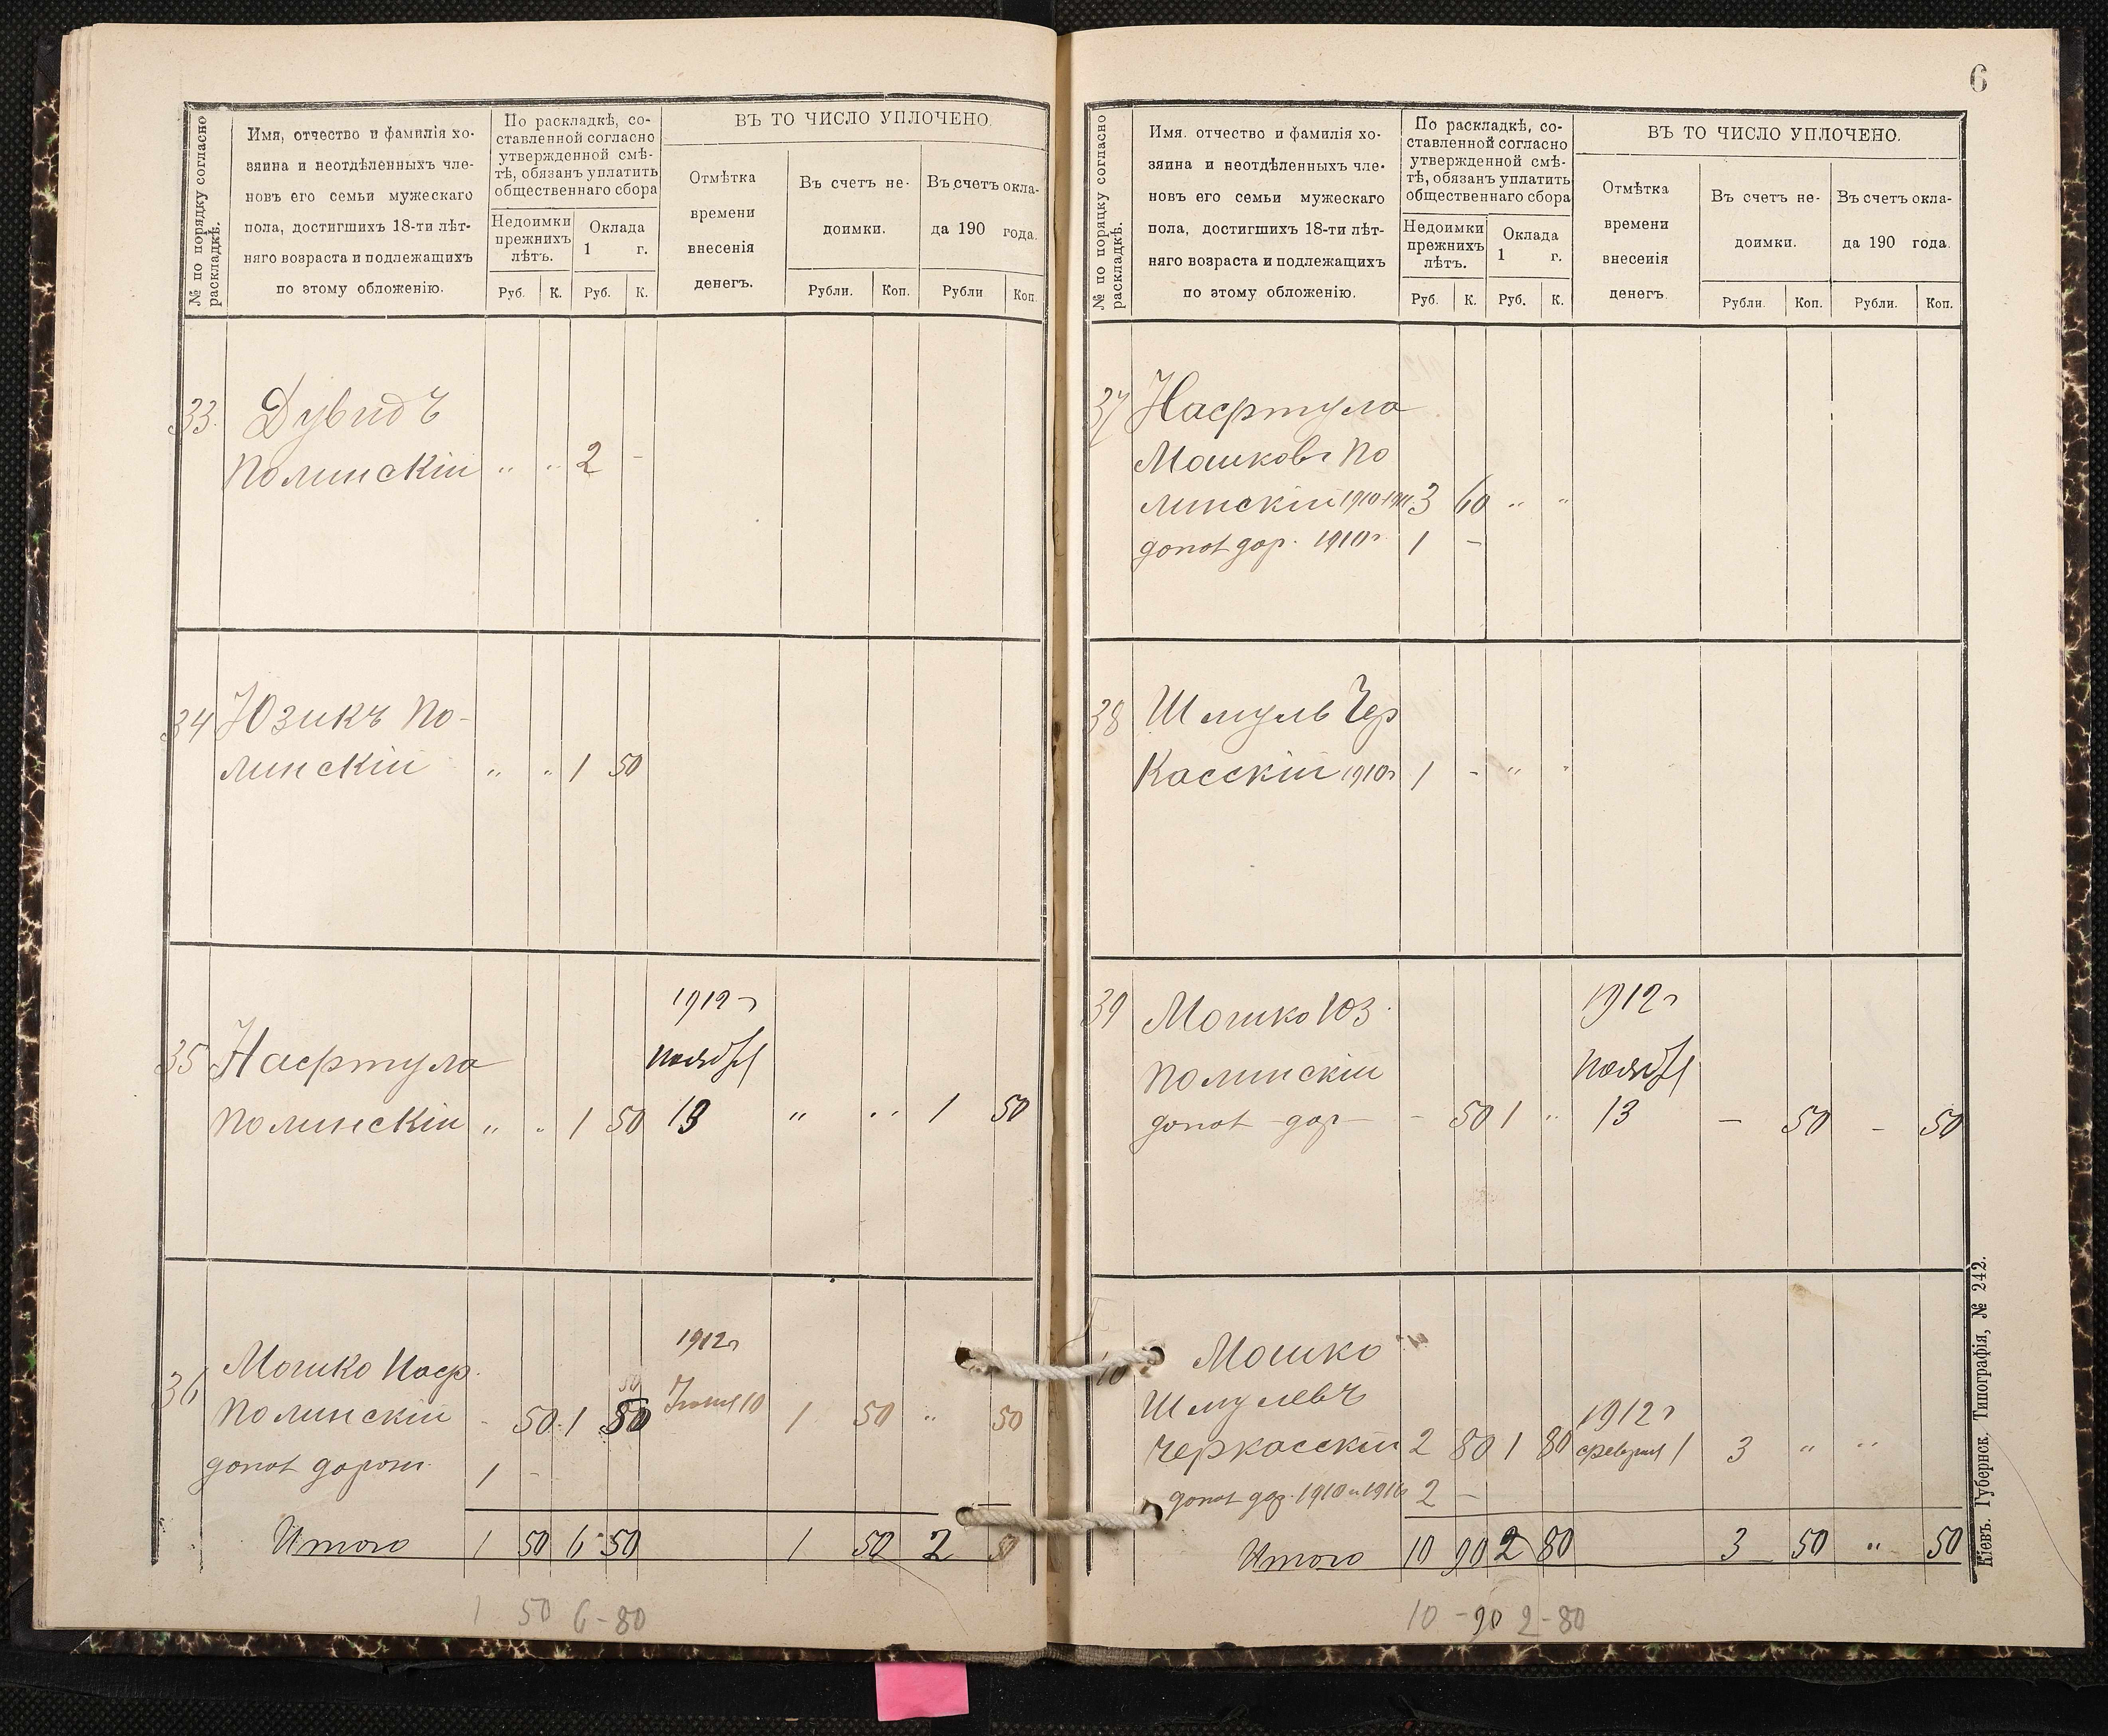 № по порядку согласно
раскладкѣ.
Имя, отчество и фамилія хо-
зяина и неотдѣленныхъ чле-
новъ его семьи мужескаго
пола, достигшихъ 18-ти лѣт-
няго возраста и подлежащихъ
по этому обложенію.
По раскладкѣ, со-
ставленной согласно
утвержденной смѣ-
тѣ, обязанъ уплатить
общественнаго сбора
Недоимки
прежнихъ
лѣтъ.
Оклада
1 г.
Руб. К. Руб. К.
ВЪ ТО ЧИСЛО УПЛОЧЕНО.
Отмѣтка
времени
внесенія
денегъ.
Въ счетъ не-
доимки.
Въ счетъ окла-
да 190 года.
Рубли. Коп. Рубли Коп.
33. Дувидъ
Полинскій " " 2 -
34 Юзикъ По-
линскій " " 1 50
35 Насртула
Полинскій " " 1 50
1912 г
ноября
13 " " 1 50
36 Мошко Наср.
Полинскій - 50 1 50
50
1912 г
10 1 50 " 50
1 -
Итого 1 50 6 50 1 50 2 50
1 50 6-80
6
№ по поряцку согласно
раскладкѣ.
Имя. отчество и фамилія хо-
зяина и неотдѣленныхъ чле-
новъ его семьи мужескаго
пола, достигшихъ 18-ти лѣт-
няго возраста и подлежащихъ
по этому обложенію.
По раскладкѣ, со-
ставленной согласно
утвержденной смѣ-
тѣ, обязанъ уплатить
общественнаго сбора
Недоимки
прежнихъ
лѣтъ.
Оклада
1 г.
Руб. К. Руб. К.
ВЪ ТО ЧИСЛО УПЛОЧЕНО.
Отмѣтка
времени
внесенія
денегъ.
Въ счетъ не-
доимки.
Въ счетъ окла-
да 190 года.
Рубли. Коп. Рубли. Коп.
37 Насртула
Мошковъ По
линскій 3 60 " "
дор. 1910 г 1 -
38 Шмуль Чер
касскій 1910 г 1 - " "
39 Мошко Юз.
Полинскій
дор - - 50 1 "
1912 г
ноября
13 - 50 - 50
Мошко
Шмулевъ
Черкасскій 2 80 1 80
1912 г
февраля 1 3 " "
дор. 2 -
Итого 10 90 2 80 3 50 " 50
10-90 2-80
Кіевъ. Губернск. Типографія, № 242.